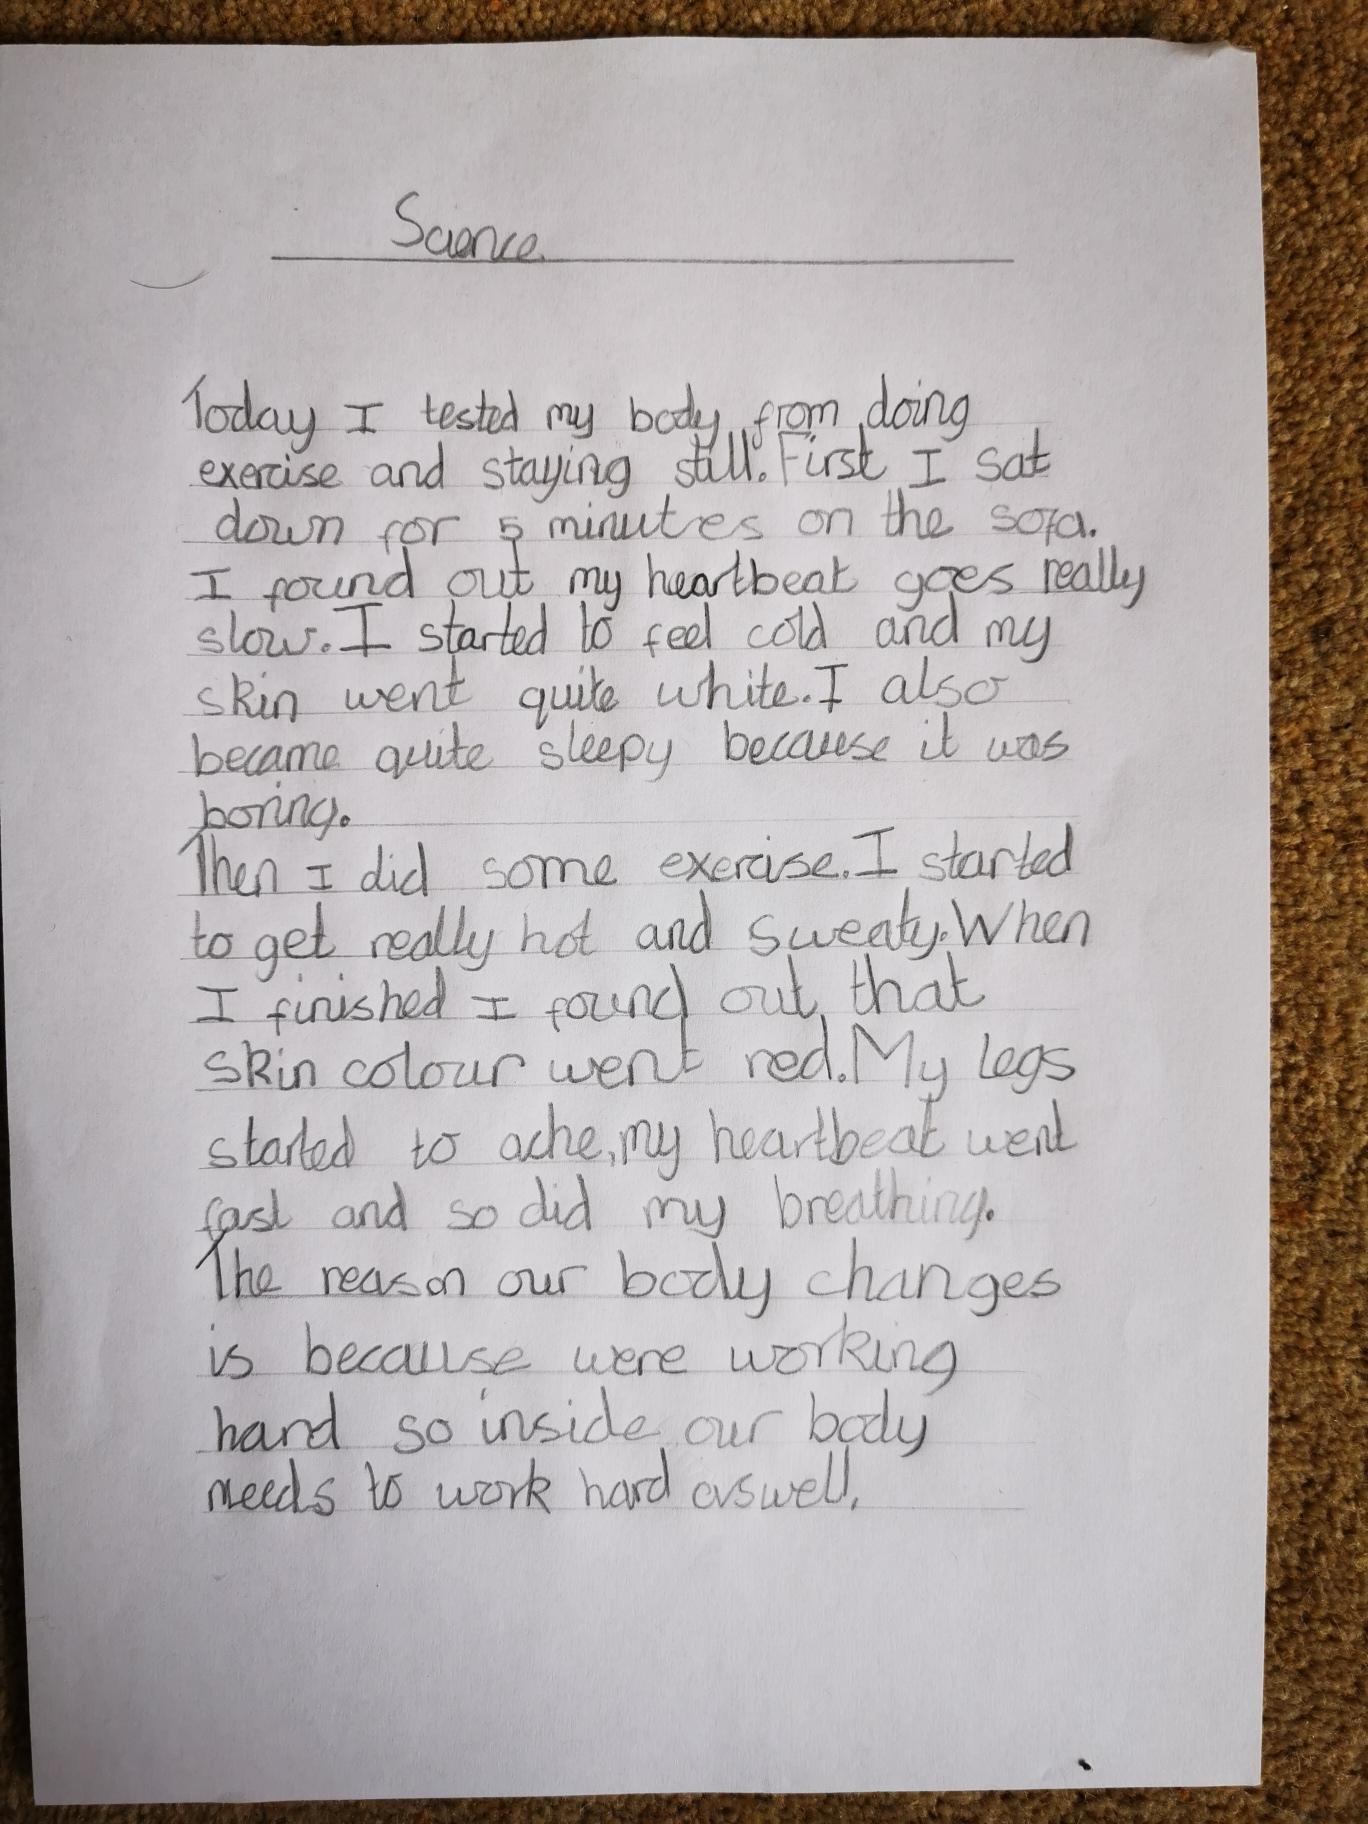 Science.
Today I tested my body from doing
exercise and staying still. First I sat
down for 5 minutes on the sofa.
I found out my heartbeat goes really
slow. I started to feel cold and my
skin went quite white. I also
became quite sleepy because it was
boring.
Then I did some exercise. I started
to get really hot and sweaty. When
I finished I found out that
skin colour went red. My legs
started to ache, my heartbeat went
fast and so did my breathing.
The reason our body changes
is because were working
hard so inside our body
needs to work hard aswell.